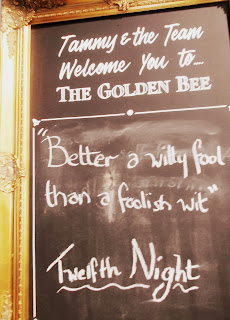 Tammy & the Team
Welcome You to...
THE GOLDEN BEE
"Better a witty fool
than a foolish wit"
Twelfth Night